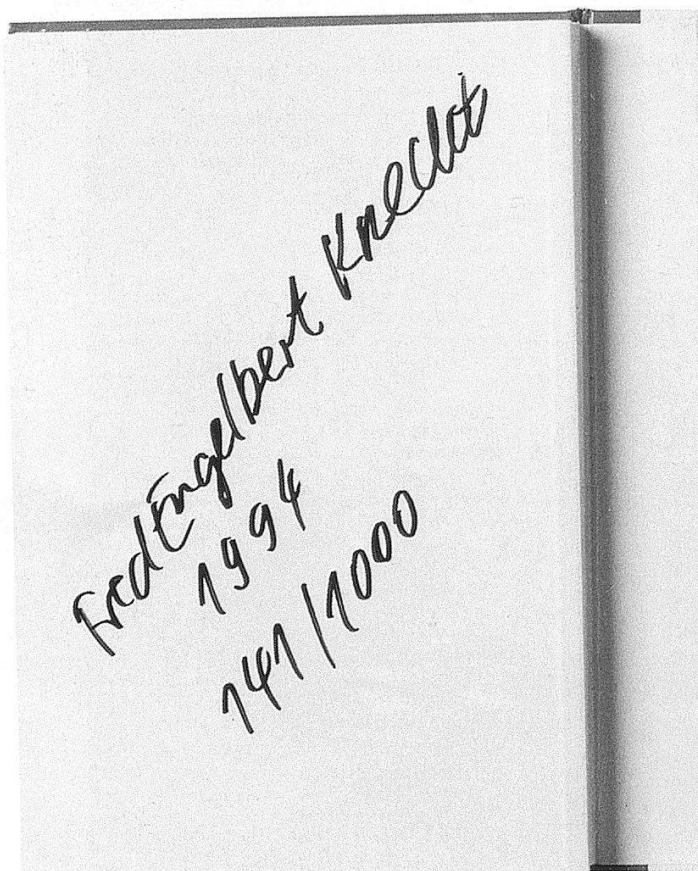 Fred Engelbert Knecht
1994
141/1000